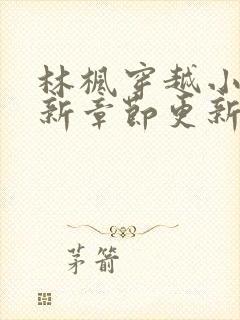 林枫穿越小
新章节更新
茅箭